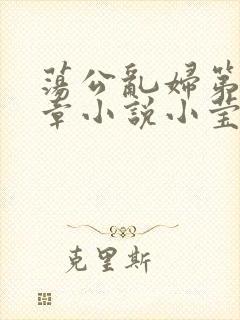 蕩公亂婦第
章小說小莹
克里斯